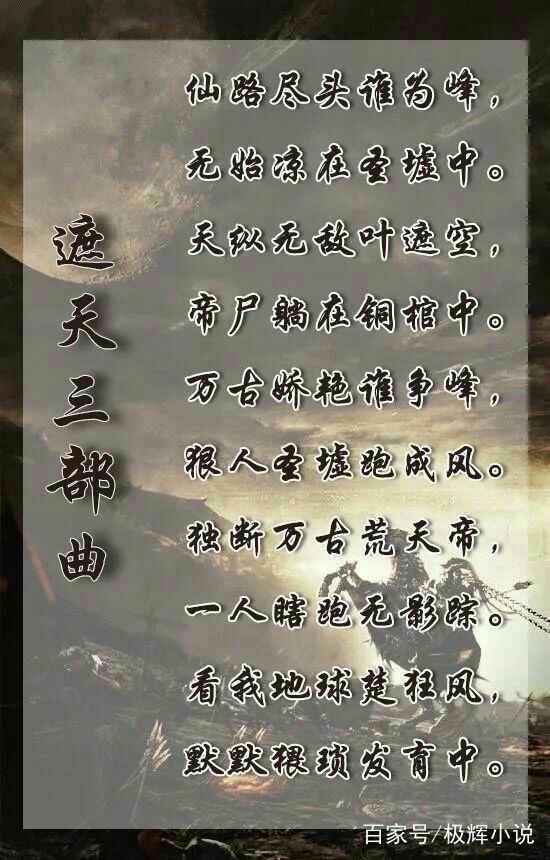 遮天三部曲
仙路尽头谁为峰，
无始凉在圣墟中。
天纵无敌叶遮空，
帝尸躺在铜棺中。
万古娇艳谁争峰，
狠人圣墟跑成风。
独断万古荒天帝，
一人瞎跑无影踪。
看我地球楚狂风，
默默猥琐发育中。
百家号/极辉小说